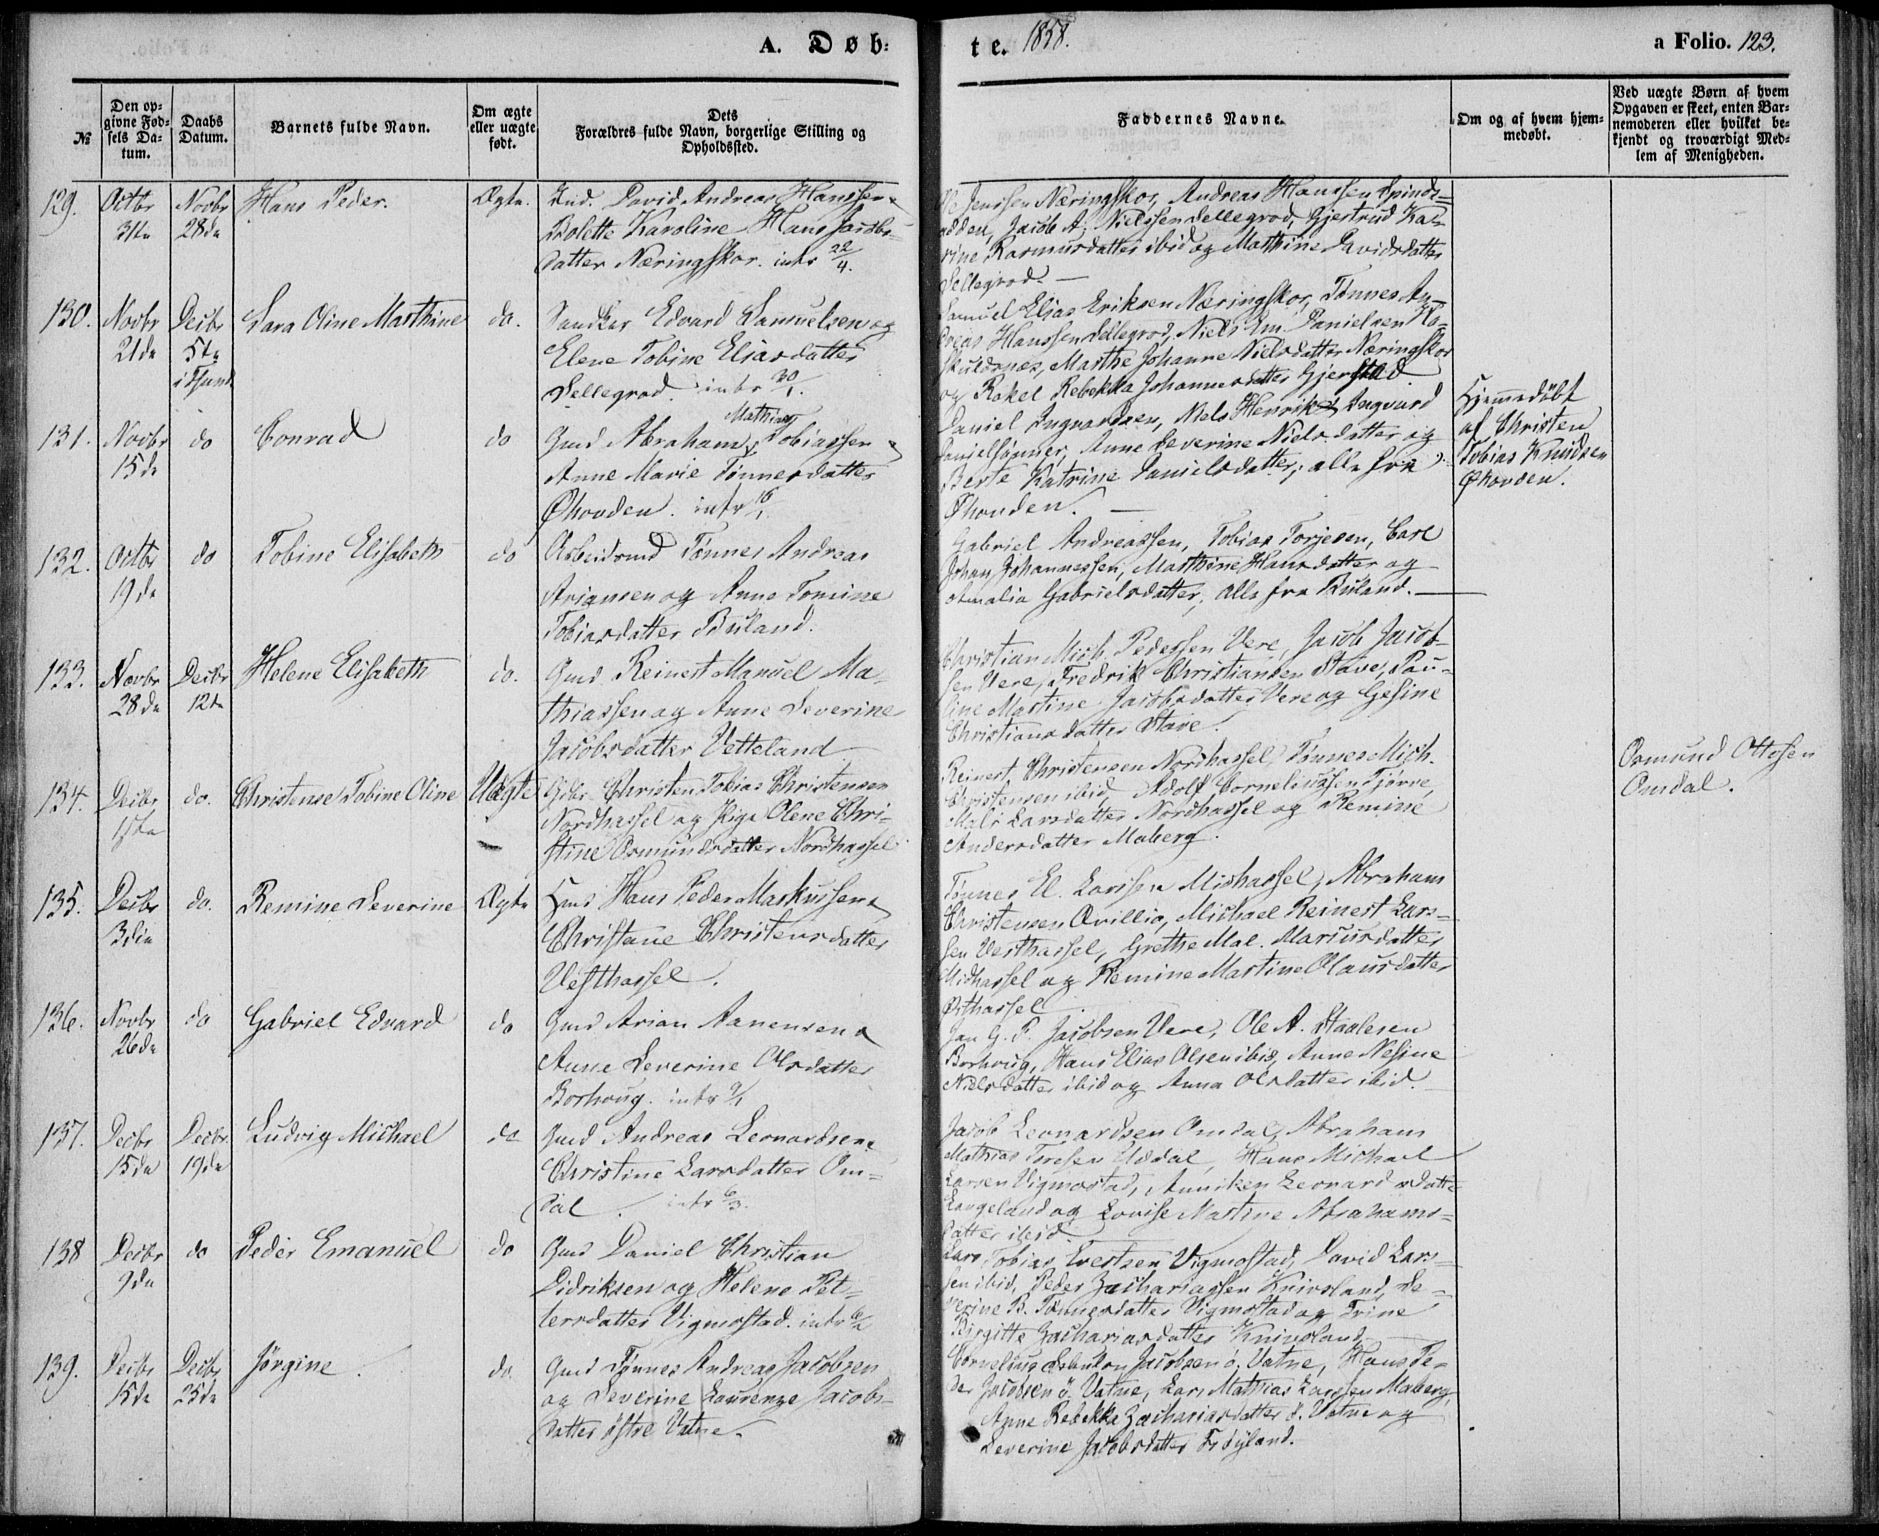 A. Døb-
te. 1858.
a Folio. 123.
№
Den op-
givne Fød-
sels Da-
tum.
Daabs
Datum.
Barnets fulde Navn.
Om ægte
eller uægte
født.
Dets
Forældres fulde Navn, borgerlige Stilling og
Opholdssted.
Faddernes Navne.
Om og af hvem hjem-
medøbt.
Ved uægte Børn af hvem
Opgaven er skeet, enten Bar-
nemoderen eller hvilket be-
kjendt og troværdigt Med-
lem af Menigheden.
129.
Octbr
31te
Novbr
28de
Hans Peder.
Ægte.
Ind. David Andreas Hanssen
Bolette Karoline Hans Jacobs-
datter Næringskor. intr 22/4.
Jenssen Næringskor, Andreas Hanssen Spinds-
odden, Jacob A. Nielssen Sellegrod, Gjertrud Ka-
rine Rasmusdatter ibid og Mathine Davidsdatter
Sellegrod. —
130.
Novbr
21de
Decbr
5te
i Sund
Sara Oline Marthine
do.
Edvard Samuelsen og
Elene Tobine Eliasdatter
Sellegrod. intr 30/1.
Samuel Elias Eriksen Næringskor, Tønnes An-
dreas Hanssen Sellegrod, Niels Em. Danielsen
Skuldsnæs, Marthe Johanne Nielsdatter Næringskor
og Rakel Rebekka Johannesdatter Gjerstad.
131.
Novbr
15de
do
Conrad
do
Mathias
Gmd Abraham Tobiassen
Anne Marie Tønnesdatter
Øhouden. intr 16/1.
Daniel Ingvardsen, Niels Henrik & Ingvard
Danielsønner, Anne Severine Nielsdatter og
Berte Katrine Danielsdatter; alle fra
Øhouden. —
Hjemmedøbt
af Christen
Tobias Knudsen
Øhouden.
132.
Octbr
19de
do
Tobine Elisabeth
do
Arbeidsmd Tønnes Andreas
Ariansen og Anne Tomine
Tobiasdatter Buland.
Gabriel Andreassen, Tobias Torjesen, Carl
Johan Johannessen, Marthine Hansdatter og
Amalia Gabrielsdatter, alle fra Buland. —
133.
Novbr
28de
Decbr
12te
Helene Elisabeth
do.
Gmd Reinert Manuel Ma-
thiassen og Anne Severine
Jacobsdatter Vetteland
Christian Mich. Pedersen Vere, Jacob Jacob-
sen Vere, Fredrik Christiansen Stave, Pau-
line Martine Jacobsdatter Vere og Gesine
Christiansdatter Stave.
134.
Decbr
do.
Christense Tobine Oline
Uægte
Christen Tobias Christensen
Nordhassel og Pige Olene Chri-
stine Osmundsdatter Nordhassel.
Reinert Christensen Nordhassel, Tønnes Mich.
Christensen ibid, Adolf Corneliussen Tjørve,
Mali Larsdatter Nordhassel og Remine
Andersdatter Maberg.
Osmund Ottosen
Omdal.
135.
Decbr
3die
do.
Remine Severine
Ægte
Gmd Hans Peder Markussen
Christane Christensdatter
Vesthassel.
Tønnes El. Larssen Midhassel, Abraham
Christensen Qvillio, Michael Reinert Lars-
sen Vesthassel, Grethe Mal. Mariusdatter
Midhassel og Remine Martine Olausdatter
Østhassel.
136.
Novbr
26de
do
Gabriel Edvard
do
Gmd Arian Aanensen
Anne Severine Olsdatter
Borhoug. intr 9/1
Jan G. P. Jacobsen Vere, Ole A. Staalesen
Borhoug, Hans Elias Olsen ibid, Anne Nesine
Nielsdatter ibid og Anna Olsdatter ibid.
137.
Decbr
15de
Decbr.
19de
Ludvig Michael
do
Gmd Andreas Leonardsen
Christine Larsdatter Om-
dal. intr 6/3.
Jacob Leonardsen Omdal, Abraham
Mathias Toresen Uddal, Hans Michael
Larsen Vigmostad, Anniken Leonardsdatter
Langeland og Lovise Martine Abrahams-
datter ibid.
138
Decbr
9de
do
Peder Emanuel
do
Gmd Daniel Christian
Didriksen og Helene Pet-
tersdatter Vigmostad. intr 6/2
Lars Tobias Evertsen Vigmostad, David Lars-
sen ibid, Peder Zachariassen Knivsland, Se-
verine B. Tønnesdatter Vigmostad og Trine
Birgitte Zachariasdatter Knivsland
139.
Decbr
15de
Decbr
25de
Jørgine.
do
Gmd Tønnes Andreas Jacobsen
og Severine Laurenze Jacobs-
datter østre Vatne.
Cornelius Jacobsen ø. Vatne, Hans Pe-
der Jacobsen ø. Vatne, Lars Mathias Larssen Maberg,
Anne Rebekka Zachariasdatter ø. Vatne og
Severine Jacobsdatter Frøyland.